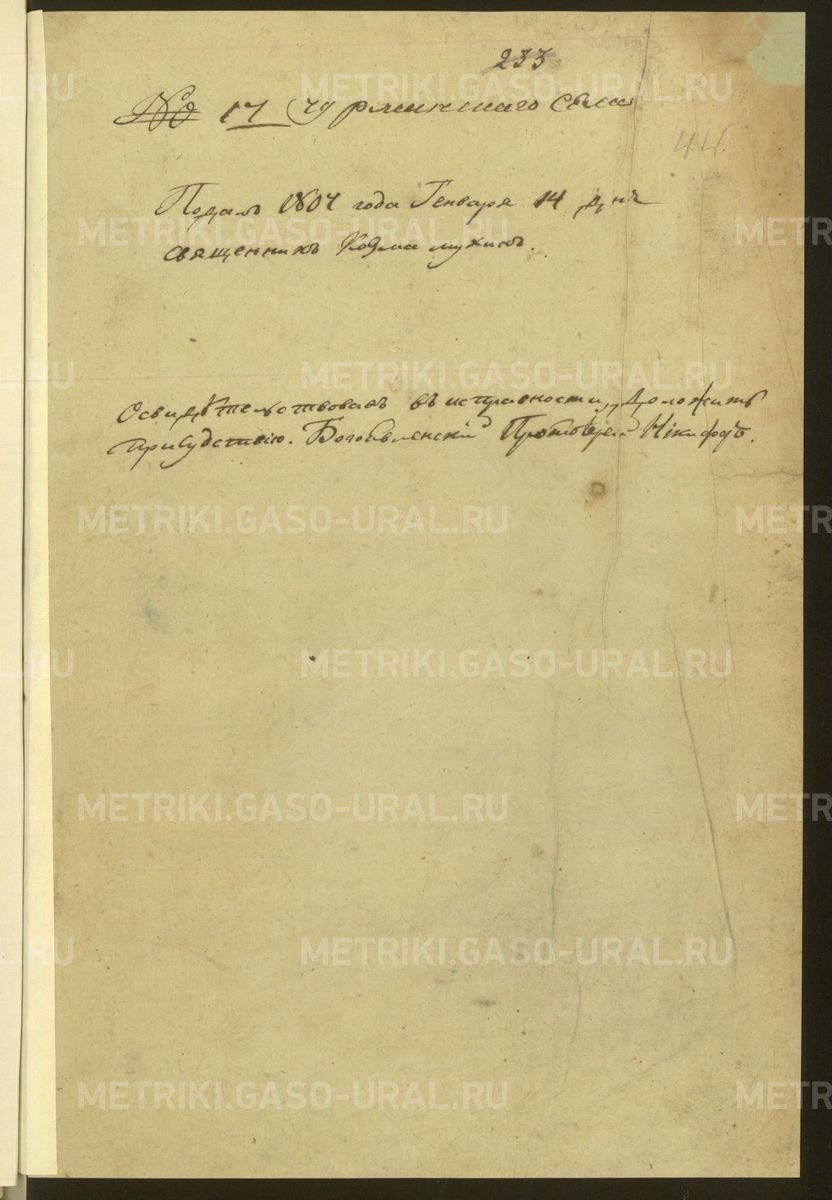 233
№ 17 Чурманскаго села
44
Подалъ 1804 года Генваря 14 дня
священникъ Козма Мухинъ.
Освидѣтельствовавъ въ исправности, доложить
присудствию. Богоявленский Протоиерей
METRIKI.GASO-URAL.RU